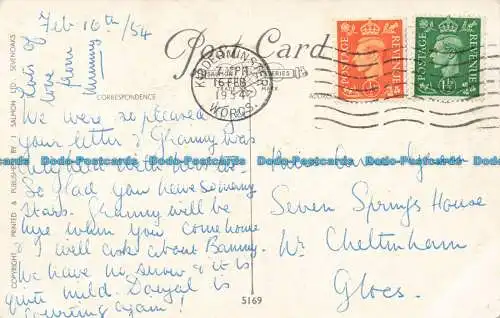 Feb 16th / 54
Lots of
love from
Mummy
Post Card
CORRESPONDENCE
KIDDERMINSTER
16 FEB
1954
WORCS.
POSTAGE REVENUE
POSTAGE REVENUE
We were so pleased
your letter & Granny was
delighted with hers
So Glad you have so many
Stars. Granny will be
here when you come home
& I will ask about Bunny.
We have no snow & it is
quite mild. Dougal is
Seven Springs House
Nr. Cheltenham
Glos.
COPYRIGHT, PRINTED & PUBLISHED BY J SALMON LTD. SEVENOAKS
5169
Dodo-Postcards Dodo-Postcards Dodo-Postcards Dodo-Postcards